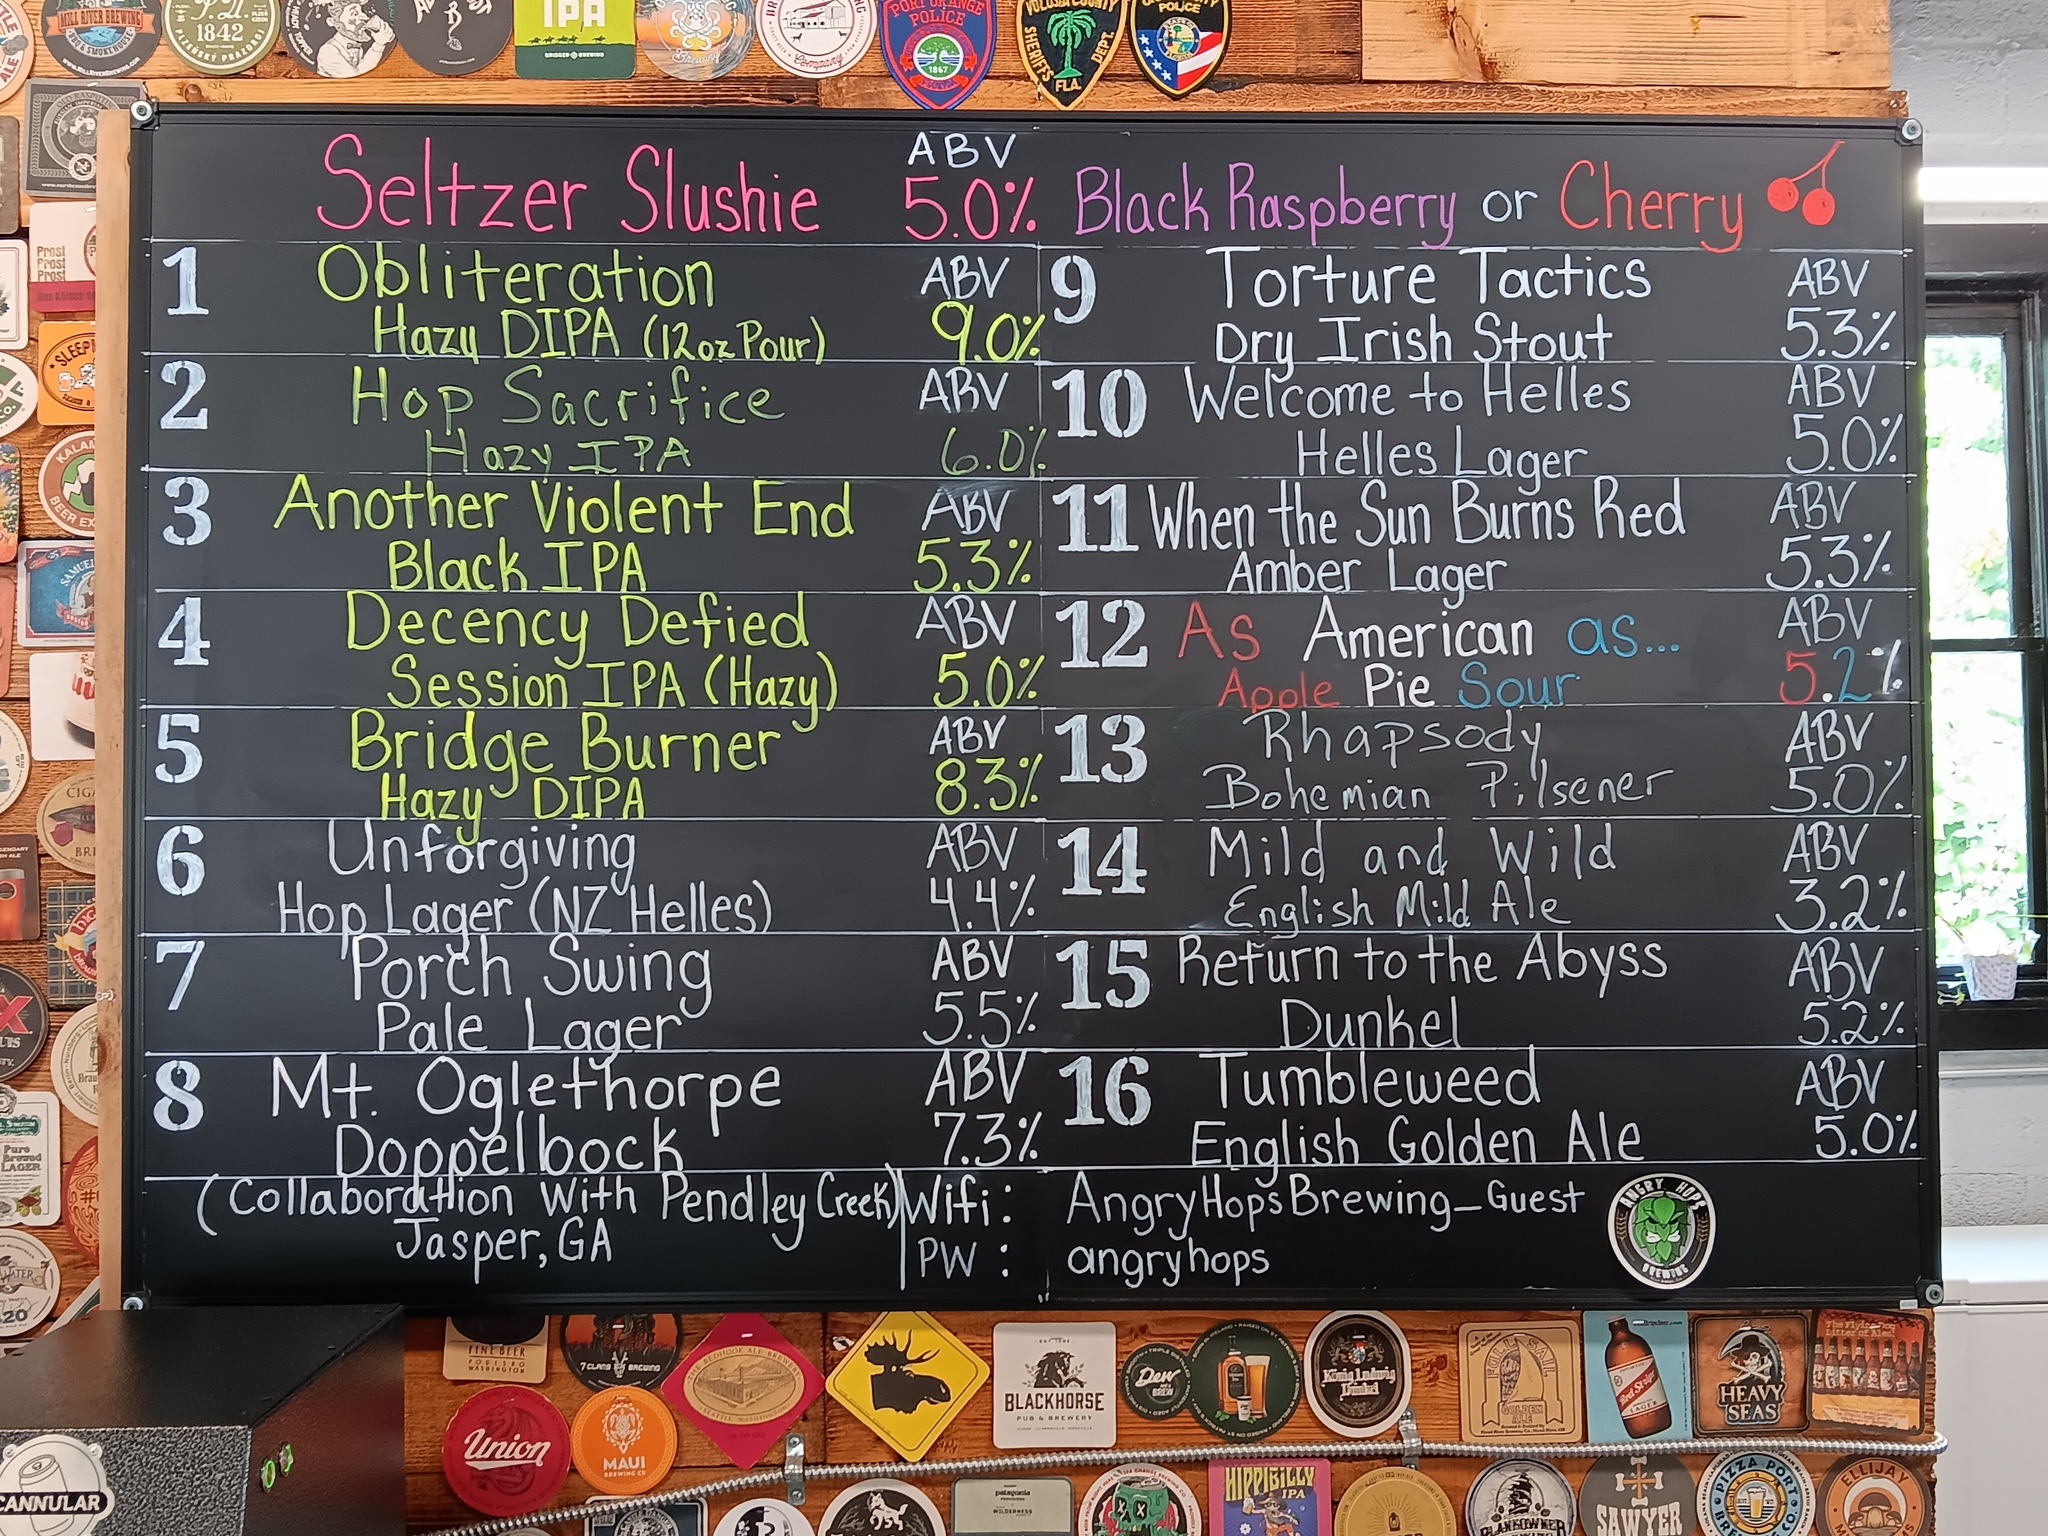 MILL RIVER BREWING
BBQ & SMOKEHOUSE
1842
IPA
BRIDGER BREWING
Brewing
Company
PORT ORANGE
POLICE
1867
VOLUSIA COUNTY
SHERIFFS DEPT.
FLA.
POLICE
ABV
Seltzer Slushie 5.0% Black Raspberry or Cherry
1 Obliteration ABV
Hazy DIPA (12oz Pour) 9.0%
2 Hop Sacrifice ABV
Hazy IPA 6.0%
3 Another Violent End ABV
Black IPA 5.3%
4 Decency Defied ABV
Session IPA (Hazy) 5.0%
5 Bridge Burner ABV
Hazy DIPA 8.3%
6 Unforgiving ABV
Hop Lager (NZ Helles) 4.4%
7 Porch Swing ABV
Pale Lager 5.5%
8 Mt. Oglethorpe ABV
Doppelbock 7.3%
(Collaboration with Pendley Creek)
Jasper, GA
9 Torture Tactics ABV
Dry Irish Stout 5.3%
10 Welcome to Helles ABV
Helles Lager 5.0%
11 When the Sun Burns Red ABV
Amber Lager 5.3%
12 As American as... ABV
Apple Pie Sour 5.2%
13 Rhapsody ABV
Bohemian Pilsener 5.0%
14 Mild and Wild ABV
English Mild Ale 3.2%
15 Return to the Abyss ABV
Dunkel 5.2%
16 Tumbleweed ABV
English Golden Ale 5.0%
Wifi: AngryHopsBrewing_Guest
PW: angryhops
ANGRY HOPS
BREWING
Prost
Prost
Prost
FINE BEER
POULSBO
WASHINGTON
7 CLANS BREWING
THE REDHOOK ALE BREWERY
SEATTLE WASHINGTON
BLACKHORSE
PUB & BREWERY
Dew
König Ludwig
Dunkel
FULL SAIL
GOLDEN
ALE
Red Stripe
LAGER
HEAVY
SEAS
The Flying Dog
Litter of Ales!
Union
MAUI
BREWING CO
CANNULAR
patagonia
WILDERNESS
HIPPIBILLY
IPA
SAWYER
PIZZA PORT
ELLIJAY